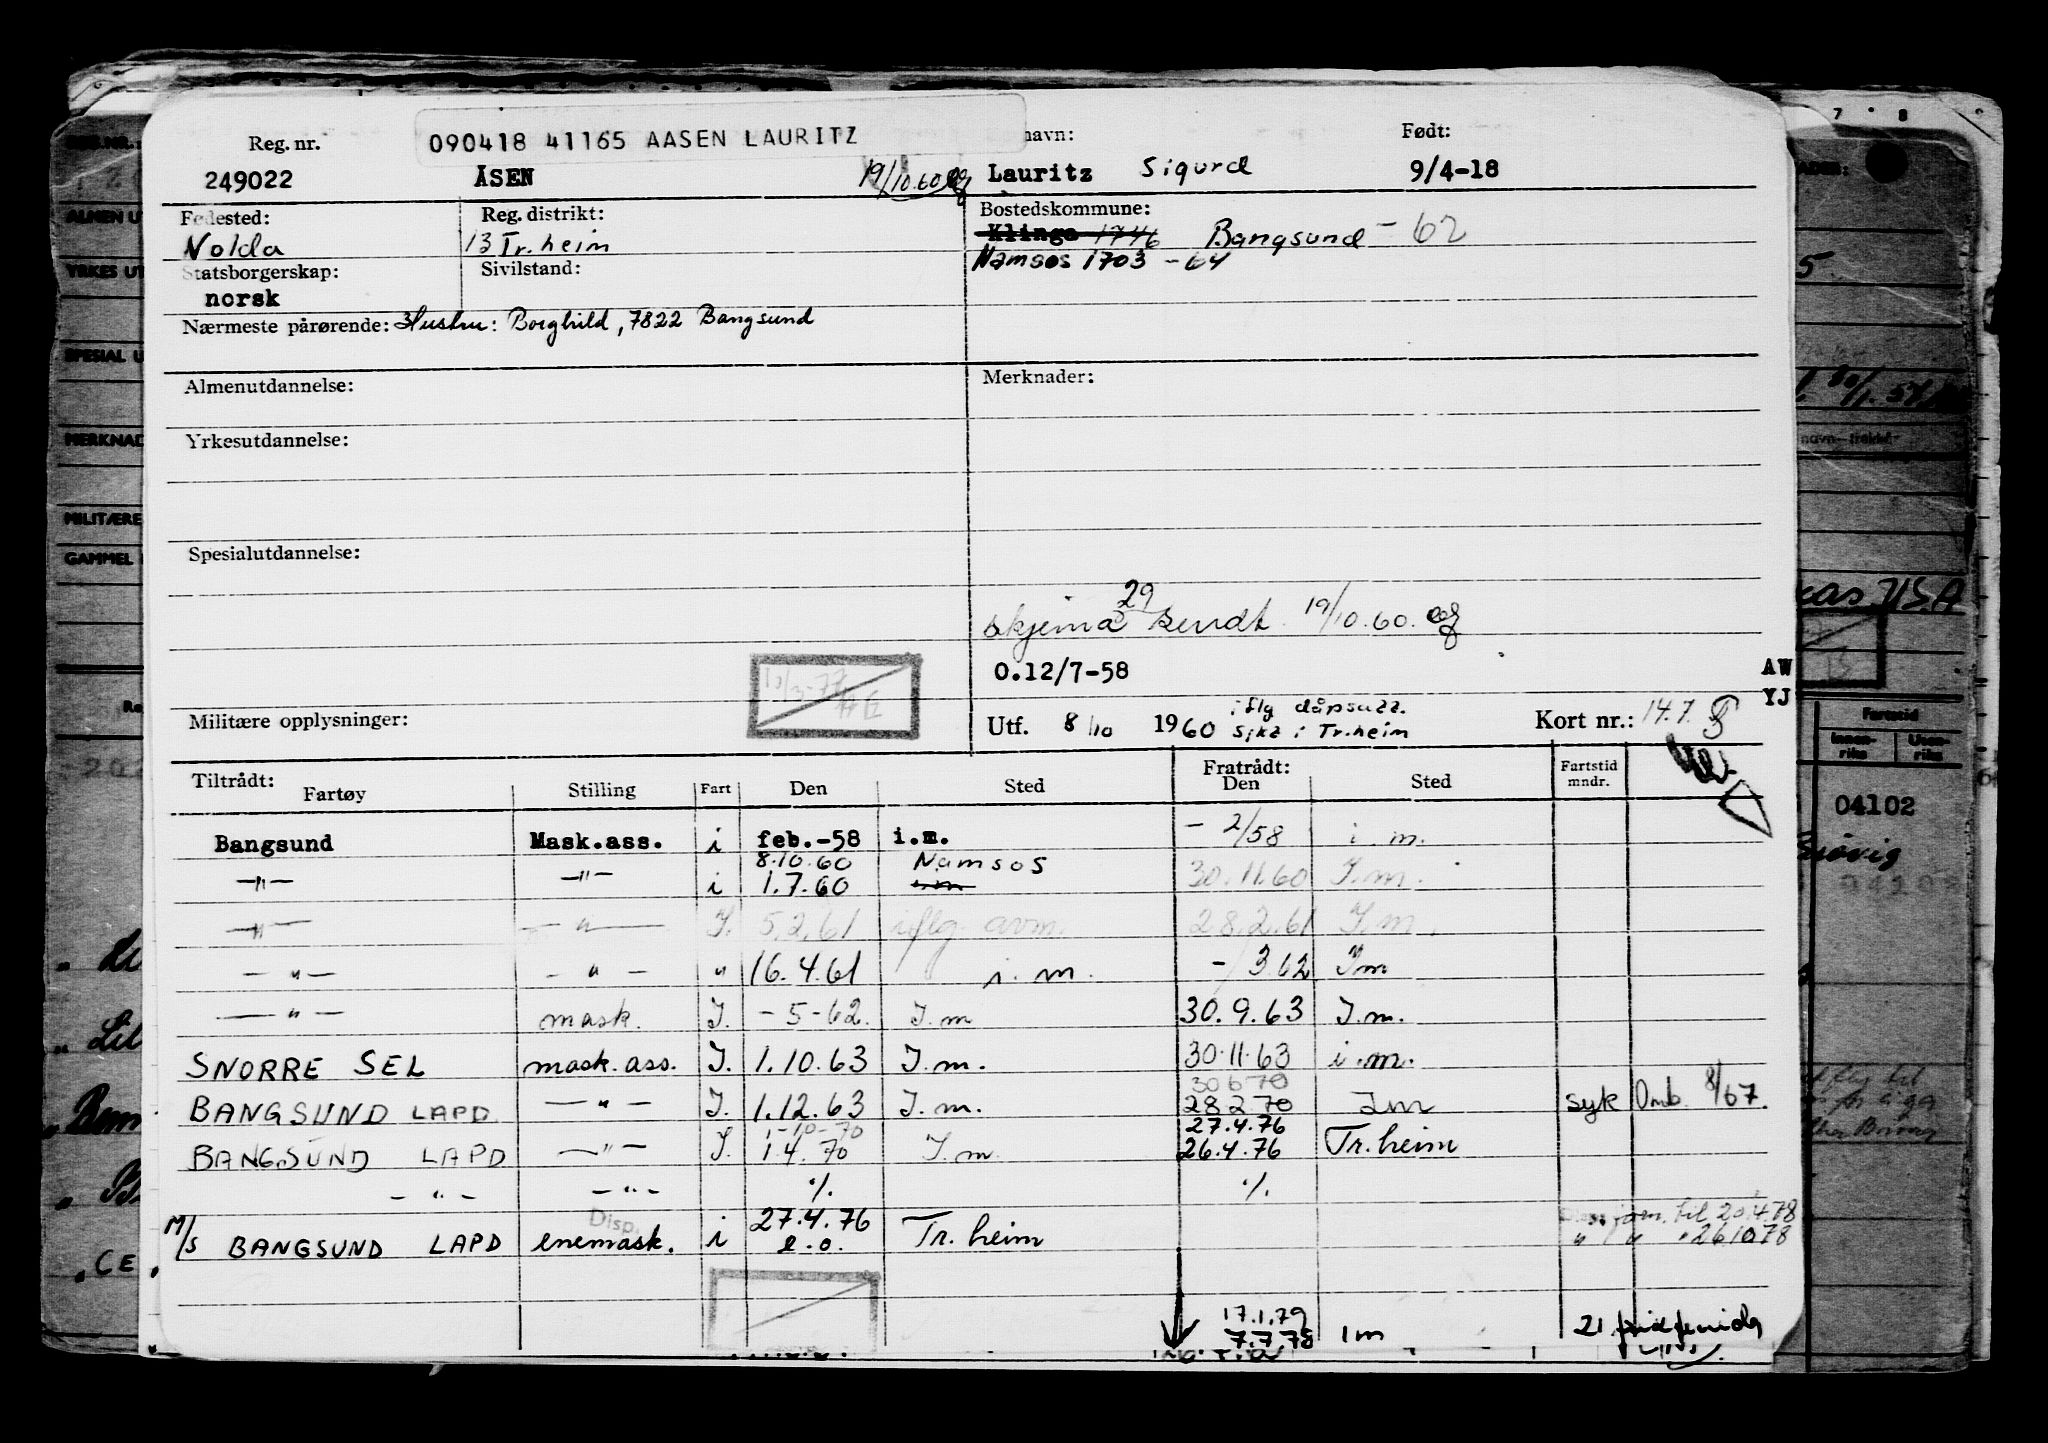 Reg. nr.
090418 41165 AASEN LAURITZ
navn:
Født:
249022 ÅSEN 19/10.60 Lauritz Sigurd 9/4-18
Fødested: Reg. distrikt: Bostedskommune:
Volda 13 Tr.heim Klinga 1746 Bangsund - 62
Statsborgerskap: Sivilstand: Namsos 1703 - 64
norsk
Nærmeste pårørende: Hustru: Borghild, 7822 Bangsund
Almenutdannelse: Merknader:
Yrkesutdannelse:
Spesialutdannelse:
29
skjema sendt 19/10.60.
0.12/7-58 AW
YJ
Militære opplysninger: Utf. 8/10 1960 iflg dåpsatt. Kort nr.: 14.7.
i Tr.heim
Tiltrådt: Fratrådt: Fartstid
Fartøy Stilling Fart Den Sted Den Sted mndr.
Bangsund Mask.ass. i feb.-58 i.m. - 2/58 i.m.
8.10.60 Namsos
-"- -"- i 1.7.60 i.m 30.11.60 I.m.
-"- -"- I. 5.2.61 iflg. avm. 28.2.61 I.m.
-"- -"- " 16.4.61 i.m. -/3 62 I m
-"- mask. I. -5-62. I.m 30.9.63 I.m.
SNORRE SEL mask.ass. I. 1.10.63 I.m. 30.11.63 i.m.
30 6 70
BANGSUND LAPD -"- I. 1.12.63 I.m. 28 2 70 I m syk Omb. 8/67.
1-10-70 27.4.76
BANGSUND LAPD -"- I. 1.4.70 I.m. 26.4.76 Tr.heim
-"- -"- ./. ./.
Disp. 27.4.76 til 20.4.78
M/S BANGSUND LAPD enemask. i e.o. Tr.heim " " " 26.10.78
17.1.79
7.7.78 i m 21
04102